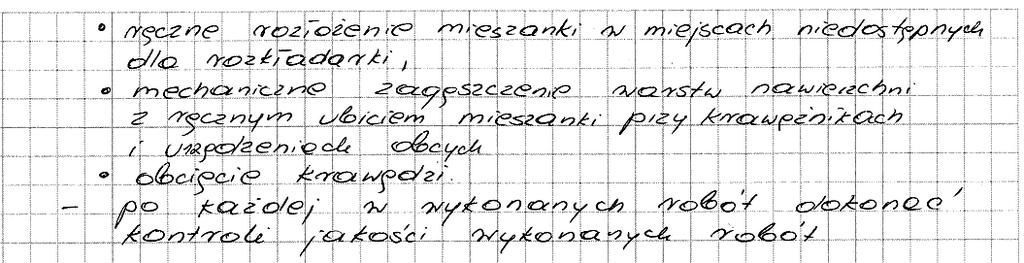 • ręczne rozłożenie mieszanki w miejscach niedostępnych
dla rozkładarki,
• mechaniczne zagęszczenie warstw nawierzchni
z ręcznym ubiciem mieszanki przy krawężnikach
i urządzeniach obcych
• obcięcie krawędzi.
- po każdej w wykonanych robót dokonać
kontroli jakości wykonanych robót